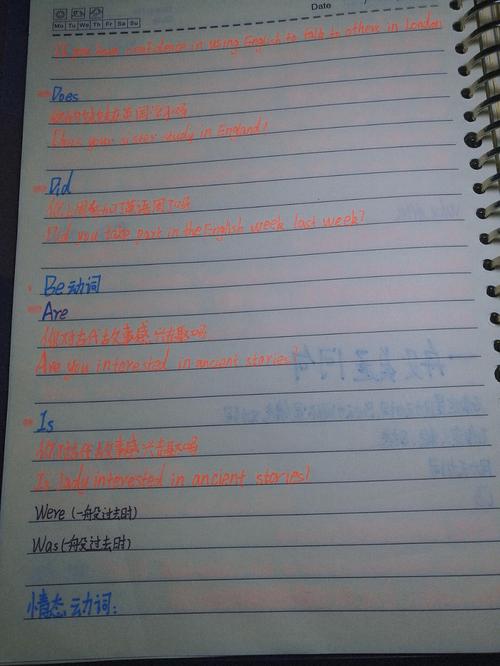 Date
Mo Tu We Th Fr Sa Su
If you have confidence in using English to talk to others in London
Does
你的妹妹在英国学习吗
Does your sister study in England?
Did
你上周参加了英语周了吗
Did you take part in the English week last week?
Be动词
Are
你对古代故事感兴趣吗
Are you interested in ancient stories?
Is
对古代故事感兴趣吗
Is lady interested in ancient stories?
Were (一般过去时)
Was (一般过去时)
情态动词: